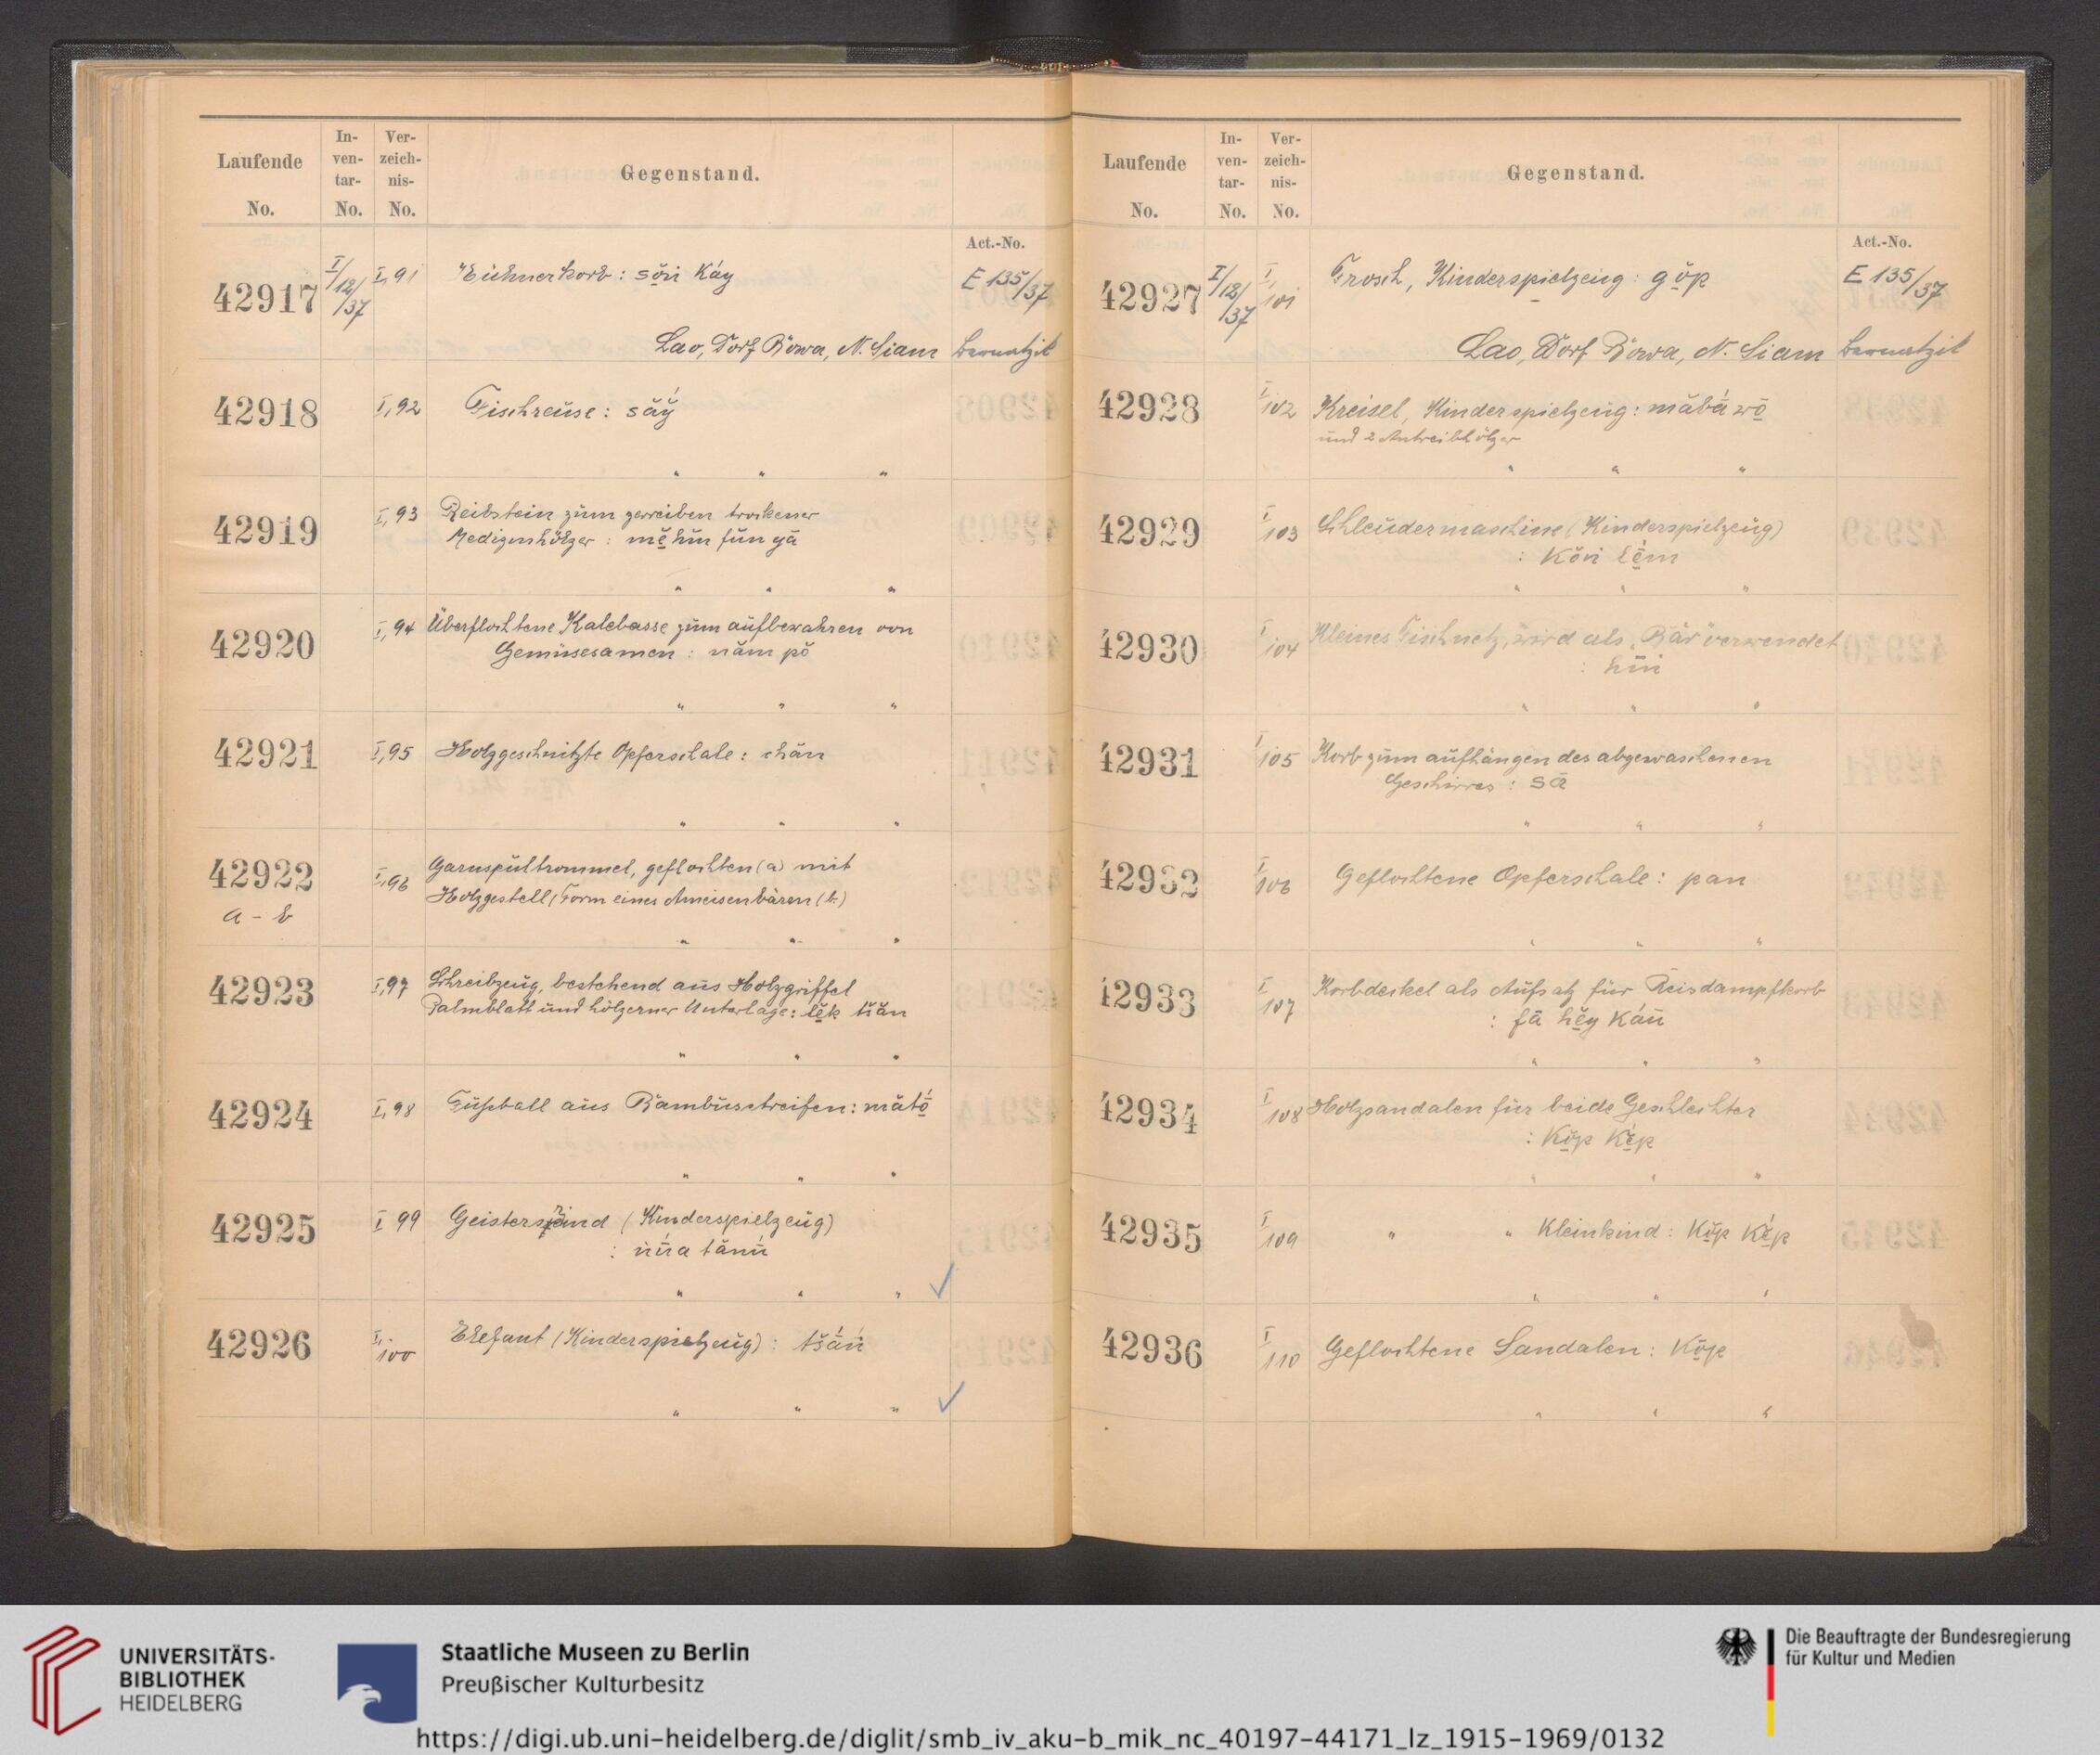 Laufende No.
In-ven-tar- No.
Ver-zeich-nis- No.
Gegenstand.
Act.-No.
42917 I/12/37 I,91 Hühnerkorb: sŏn Káy E 135/37
Lao, Dorf Bowa, N. Siam Bernatzik
42918 I,92 Fischreuse:
" " "
42919 I,93 Reibstein zum zerreiben trockener
Medizinhölzer:
" " "
42920 I,94 Überflochtene Kalebasse zum aufbewahren von
Gemüsesamen: năm pŏ
" " "
42921 I,95 Holzgeschnitzte Opferschale: chăn
" " "
42922 I,96 Garnspultrommel, geflochten (a) mit
a - b Holzgestell, Form eines Ameisenbären (b)
" " "
42923 I,97 Schreibzeug, bestehend aus Holzgriffel
Palmblatt und hölzerner Unterlage:
" " "
42924 I,98 Fußball aus Bambusstreifen:
" " "
42925 I 99 (Kinderspielzeug)
" " "
42926 I, 100 Elefant (Kinderspielzeug):
" " "
Laufende No.
In-ven-tar- No.
Ver-zeich-nis- No.
Gegenstand.
Act.-No.
42927 I/12/37 I, 101 Frosch, Kinderspielzeug: E 135/37
Lao, Dorf Bowa, N. Siam Bernatzik
42928 I, 102 Kreisel, Kinderspielzeug:
und 2 Antreibhölzer
" " "
42929 I, 103 Schleudermaschine (Kinderspielzeug)
" " "
42930 I, 104 Kleines Fischnetz, wird als „Bär" verwendet
" " "
42931 I, 105 Korb zum aufhängen des abgewaschenen
Geschirres: sā
" " "
42932 I, 106 Geflochtene Opferschale: pan
" " "
42933 I, 107 Korbdeckel als Aufsatz für Reisdampfkorb
" " "
42934 I, 108 Holzsandalen für beide Geschlechter
" " "
42935 I, 109 " " Kleinkind:
" " "
42936 I, 110 Geflochtene Sandalen:
" " "
UNIVERSITÄTS-
BIBLIOTHEK
HEIDELBERG
Staatliche Museen zu Berlin
Preußischer Kulturbesitz
Die Beauftragte der Bundesregierung
für Kultur und Medien
https://digi.ub.uni-heidelberg.de/diglit/smb_iv_aku-b_mik_nc_40197-44171_lz_1915-1969/0132